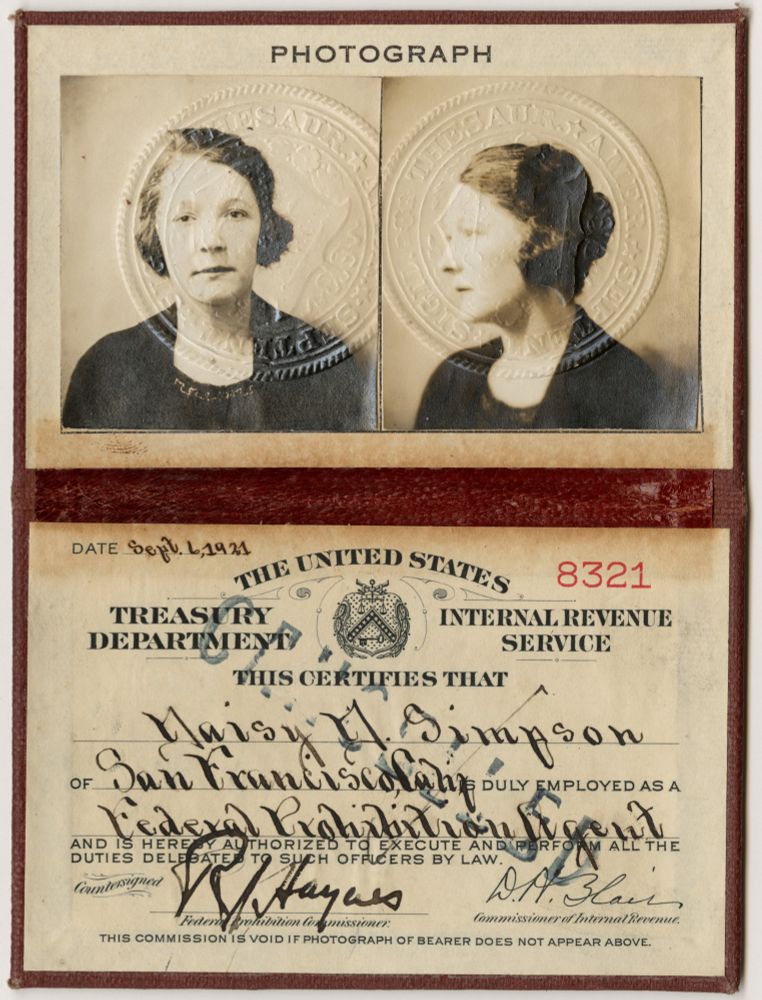 PHOTOGRAPH
THESAUR. AMER. SEPTENT.
THESAUR. AMER. SEPTENT. SIGIL.
DATE Sept. 6, 1921
8321
THE UNITED STATES
TREASURY DEPARTMENT
INTERNAL REVENUE SERVICE
THIS CERTIFIES THAT
Daisy D. Simpson
OF San Francisco, Calif IS DULY EMPLOYED AS A
Federal Prohibition Agent
AND IS HEREBY AUTHORIZED TO EXECUTE AND PERFORM ALL THE
DUTIES DELEGATED TO SUCH OFFICERS BY LAW.
Countersigned
R. Haynes
D. H. Blair
Federal Prohibition Commissioner.
Commissioner of Internal Revenue.
THIS COMMISSION IS VOID IF PHOTOGRAPH OF BEARER DOES NOT APPEAR ABOVE.